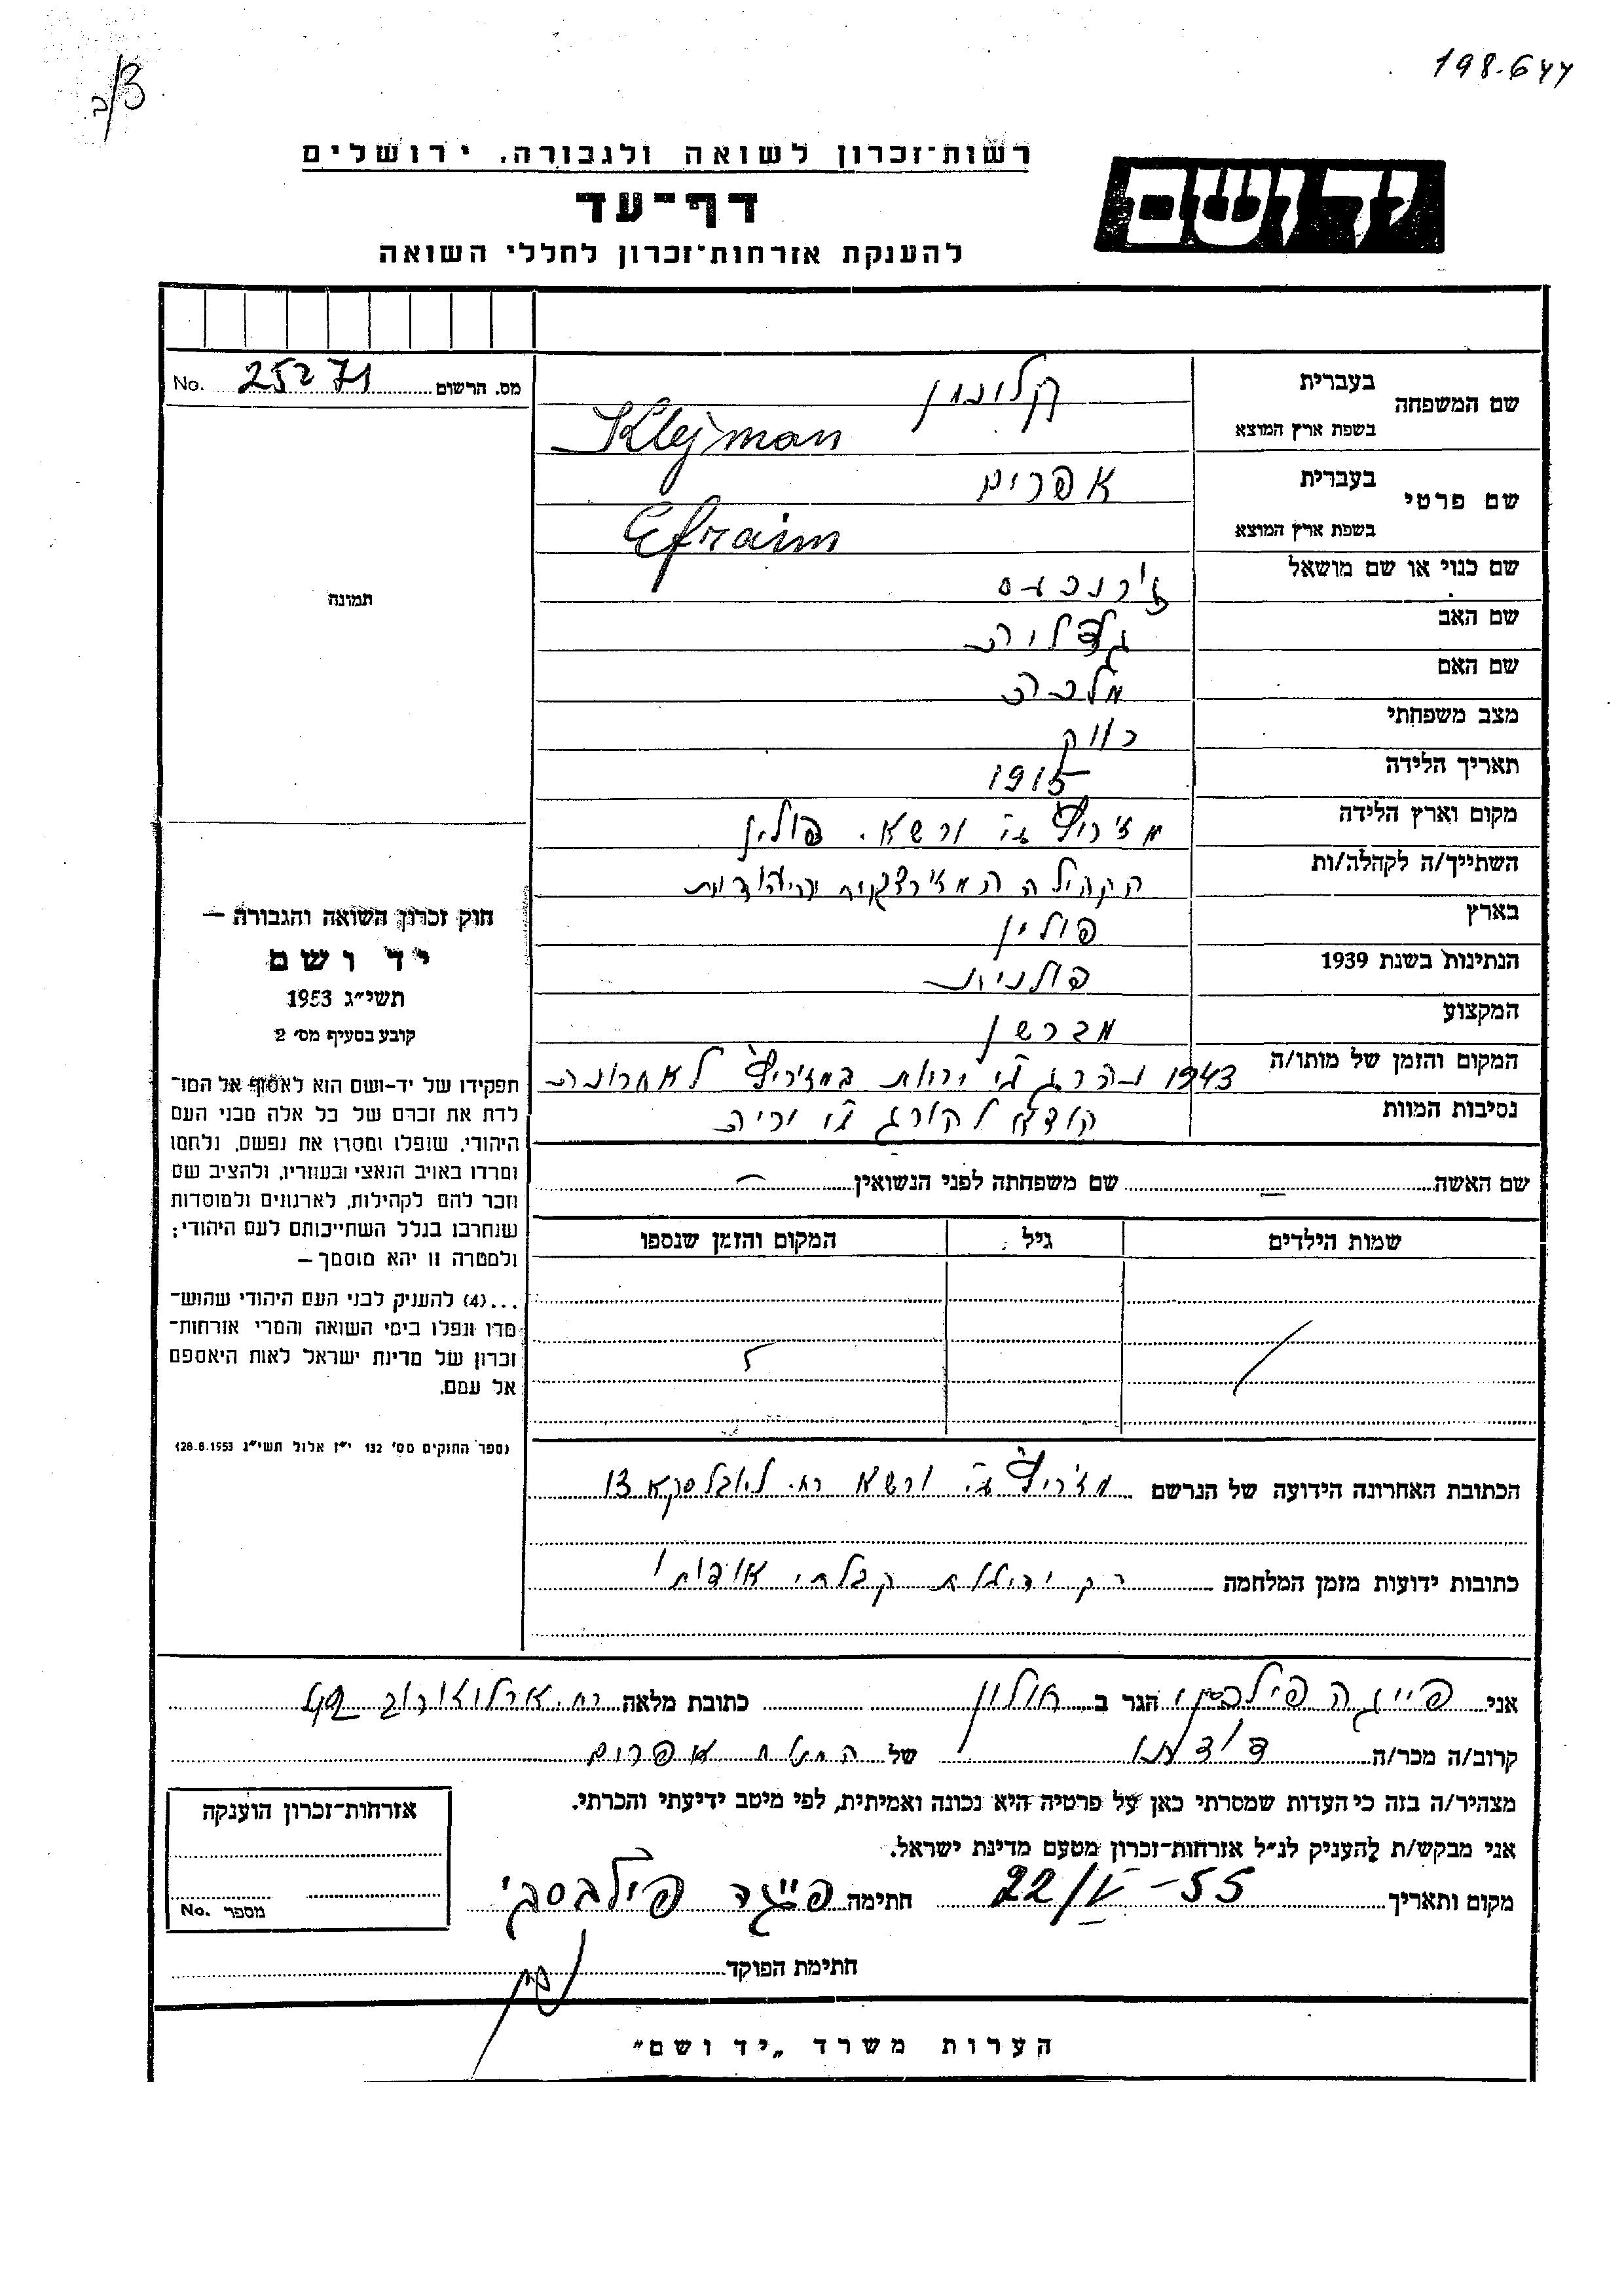 198.644
ב/3
רשות־זכרון לשואה ולגבורה, ירושלים
יד ושם
דף־עד
להענקת אזרחות־זכרון לחללי השואה
מס. הרשום 25271 No.
שם המשפחה בעברית קליימן
בשפת ארץ המוצא Klejman
שם פרטי בעברית אפרים
בשפת ארץ המוצא Efraim
שם כנוי או שם מושאל
שם האב גדליה
שם האם מלכה
מצב משפחתי רווק
תאריך הלידה 1915
מקום וארץ הלידה ע"י ורשא. פולין
השתייך/ה לקהלה/ות הקהילה
בארץ פולין
הנתינות בשנת 1939 פולנית
המקצוע מברשן
המקום והזמן של מותו/ה 1943 נהרג ע"י יריות לאחרונה
נסיבות המוות
שם האשה – שם משפחתה לפני הנשואין –
שמות הילדים גיל המקום והזמן שנספו
הכתובת האחרונה הידועה של הנרשם ע"י ורשא רח. 13
כתובות ידועות מזמן המלחמה רק ידיעות קבלתי אודותיו
תמונה
חוק זכרון השואה והגבורה –
יד ושם
תשי״ג 1953
קובע בסעיף מס׳ 2
תפקידו של יד-ושם הוא לאסוף אל המו־
לדת את זכרם של כל אלה מבני העם
היהודי, שנפלו ומסרו את נפשם, נלחמו
ומרדו באויב הנאצי ובעוזריו, ולהציב שם
וזכר להם לקהילות, לארגונים ולמוסדות
שנחרבו בגלל השתייכותם לעם היהודי;
ולמטרה זו יהא מוסמך –
...(4) להעניק לבני העם היהודי שהוש־
מדו ונפלו בימי השואה והמרי אזרחות־
זכרון של מדינת ישראל לאות היאספם
אל עמם.
(ספר החוקים מס׳ 132 י״ז אלול תשי״ג 28.8.1953)
אני פייגה פילבסקי הגר ב חולון כתובת מלאה רח. ארלוזורוב
קרוב/ה מכר/ה דודתו של המנוח אפרים
מצהיר/ה בזה כי העדות שמסרתי כאן על פרטיה היא נכונה ואמיתית, לפי מיטב ידיעתי והכרתי.
אני מבקש/ת להעניק לנ״ל אזרחות־זכרון מטעם מדינת ישראל.
מקום ותאריך 22/V-55 חתימה פייגה פילבסקי
חתימת הפוקד
אזרחות־זכרון הוענקה
מספר No.
הערות משרד „יד ושם״